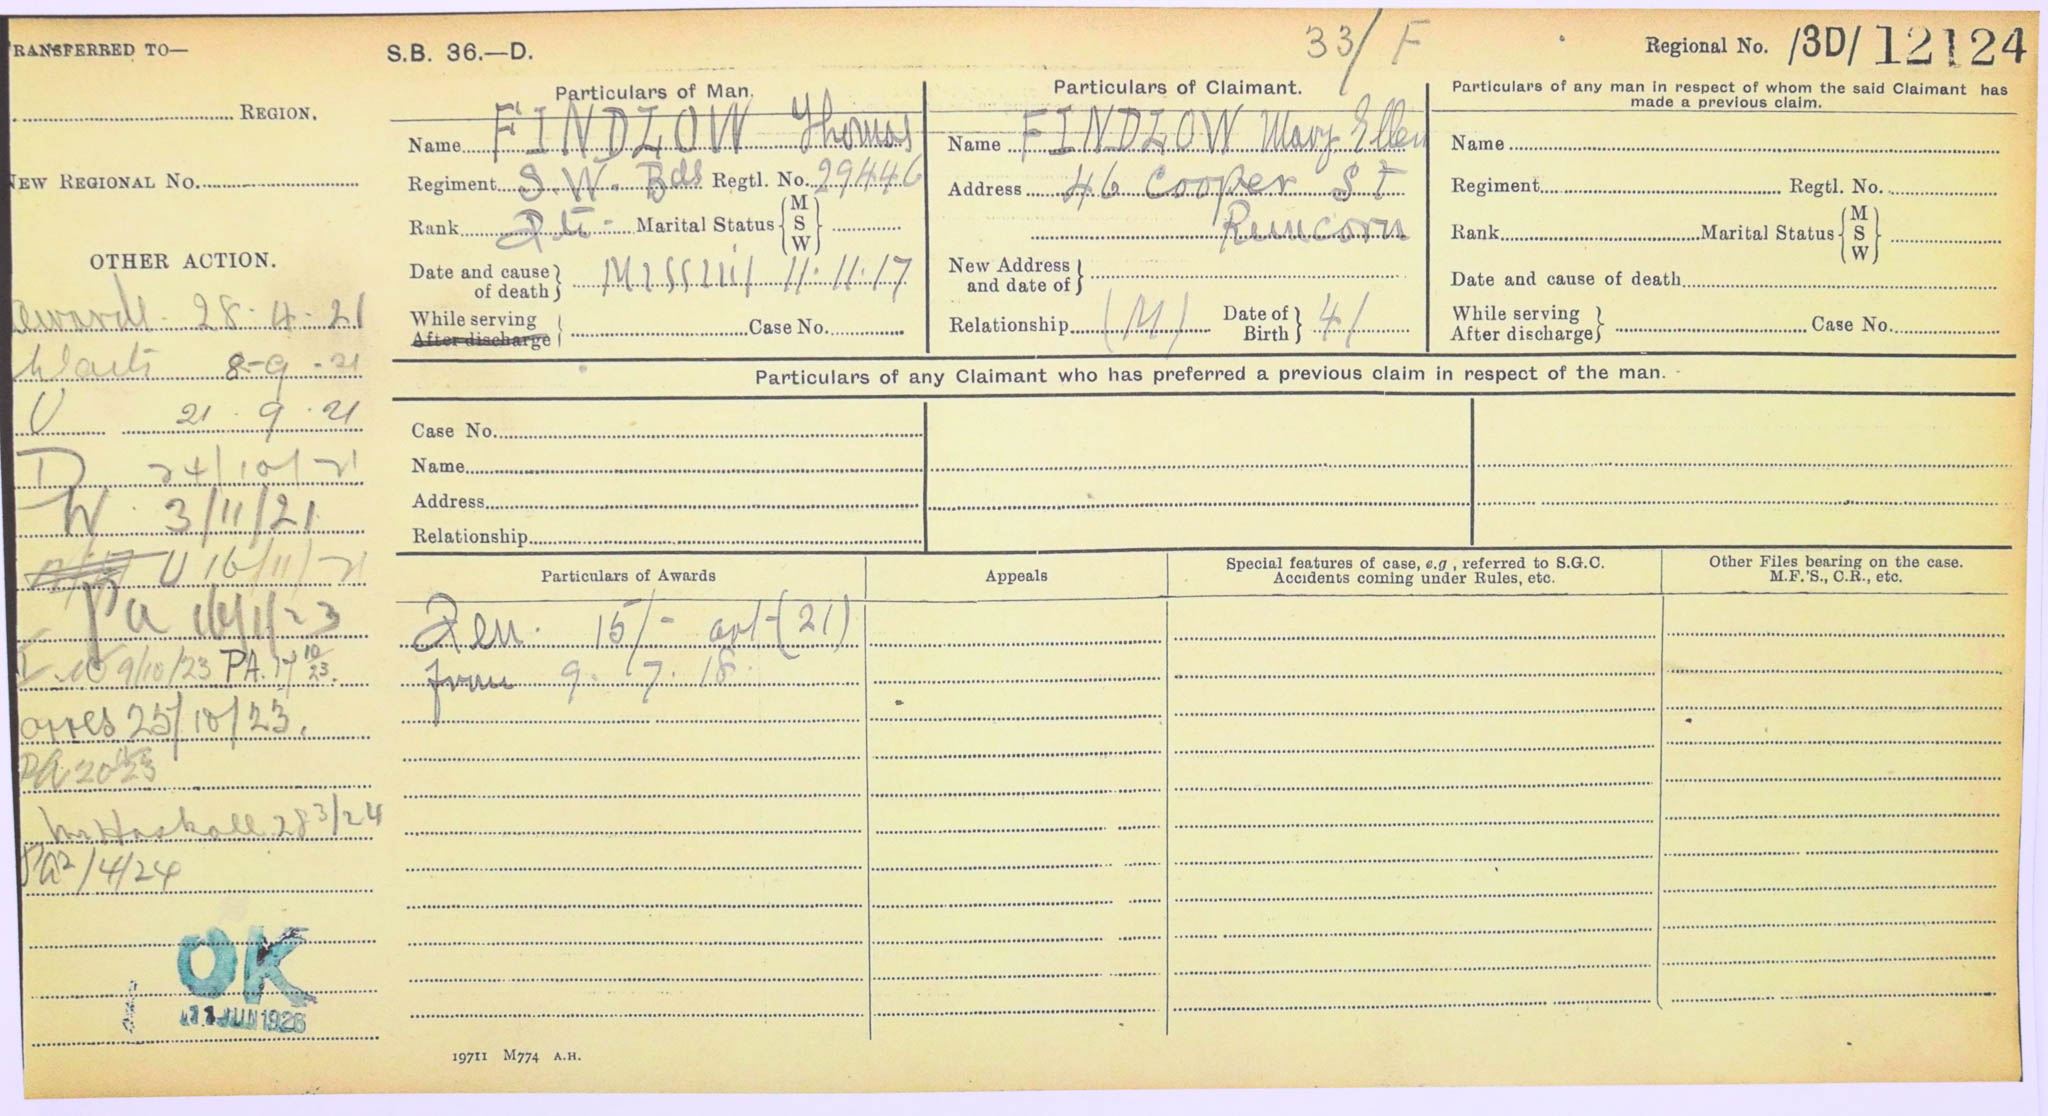 33/F
TRANSFERRED TO—
S.B. 36.—D.
Regional No. /3D/12124
REGION.
NEW REGIONAL NO.
OTHER ACTION.
28.4.21
8-9-21
U 21.9.21
D 24/10/21
W. 3/11/21
U 16/11/21
Pa
9/10/23 PA. 17 10/23.
25/10/23.
PA 20 23
Haskall 28 3/24
PA 2/4/24
OK
11 JUN 1926
Particulars of Man.
Name FINDLOW Thomas
Regiment S.W. Bds Regtl. No. 29446
Rank Pte - Marital Status {M S W}
Date and cause of death} Missing 11.11.17
While serving
After discharge
Case No.
Particulars of Claimant.
Name FINDLOW Mary Ellen
Address 46 Cooper St
Runcorn
New Address and date of}
Relationship (M) Date of Birth} 41
Particulars of any man in respect of whom the said Claimant has
made a previous claim.
Name
Regiment Regtl. No.
Rank Marital Status {M S W}
Date and cause of death
While serving
After discharge} Case No.
Particulars of any Claimant who has preferred a previous claim in respect of the man.
Case No.
Name
Address
Relationship
Particulars of Awards
Pen. 15/- (21)
from 9.7.18
Appeals
Special features of case, e.g, referred to S.G.C.
Accidents coming under Rules, etc.
Other Files bearing on the case.
M.F.'S., C.R., etc.
19711 M774 A.H.